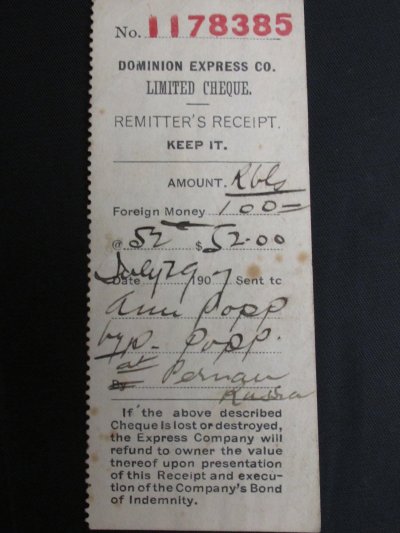 No. 1178385
DOMINION EXPRESS CO.
LIMITED CHEQUE.
REMITTER'S RECEIPT.
KEEP IT.
AMOUNT. Rbls
Foreign Money 100=
@ 52 $ 52.00
Date July 29 1907 Sent to
Ann Popp
by P. Popp.
at
By Pernau
Russia
If the above described
Cheque is lost or destroyed,
the Express Company will
refund to owner the value
thereof upon presentation
of this Receipt and execu-
tion of the Company's Bond
of Indemnity.